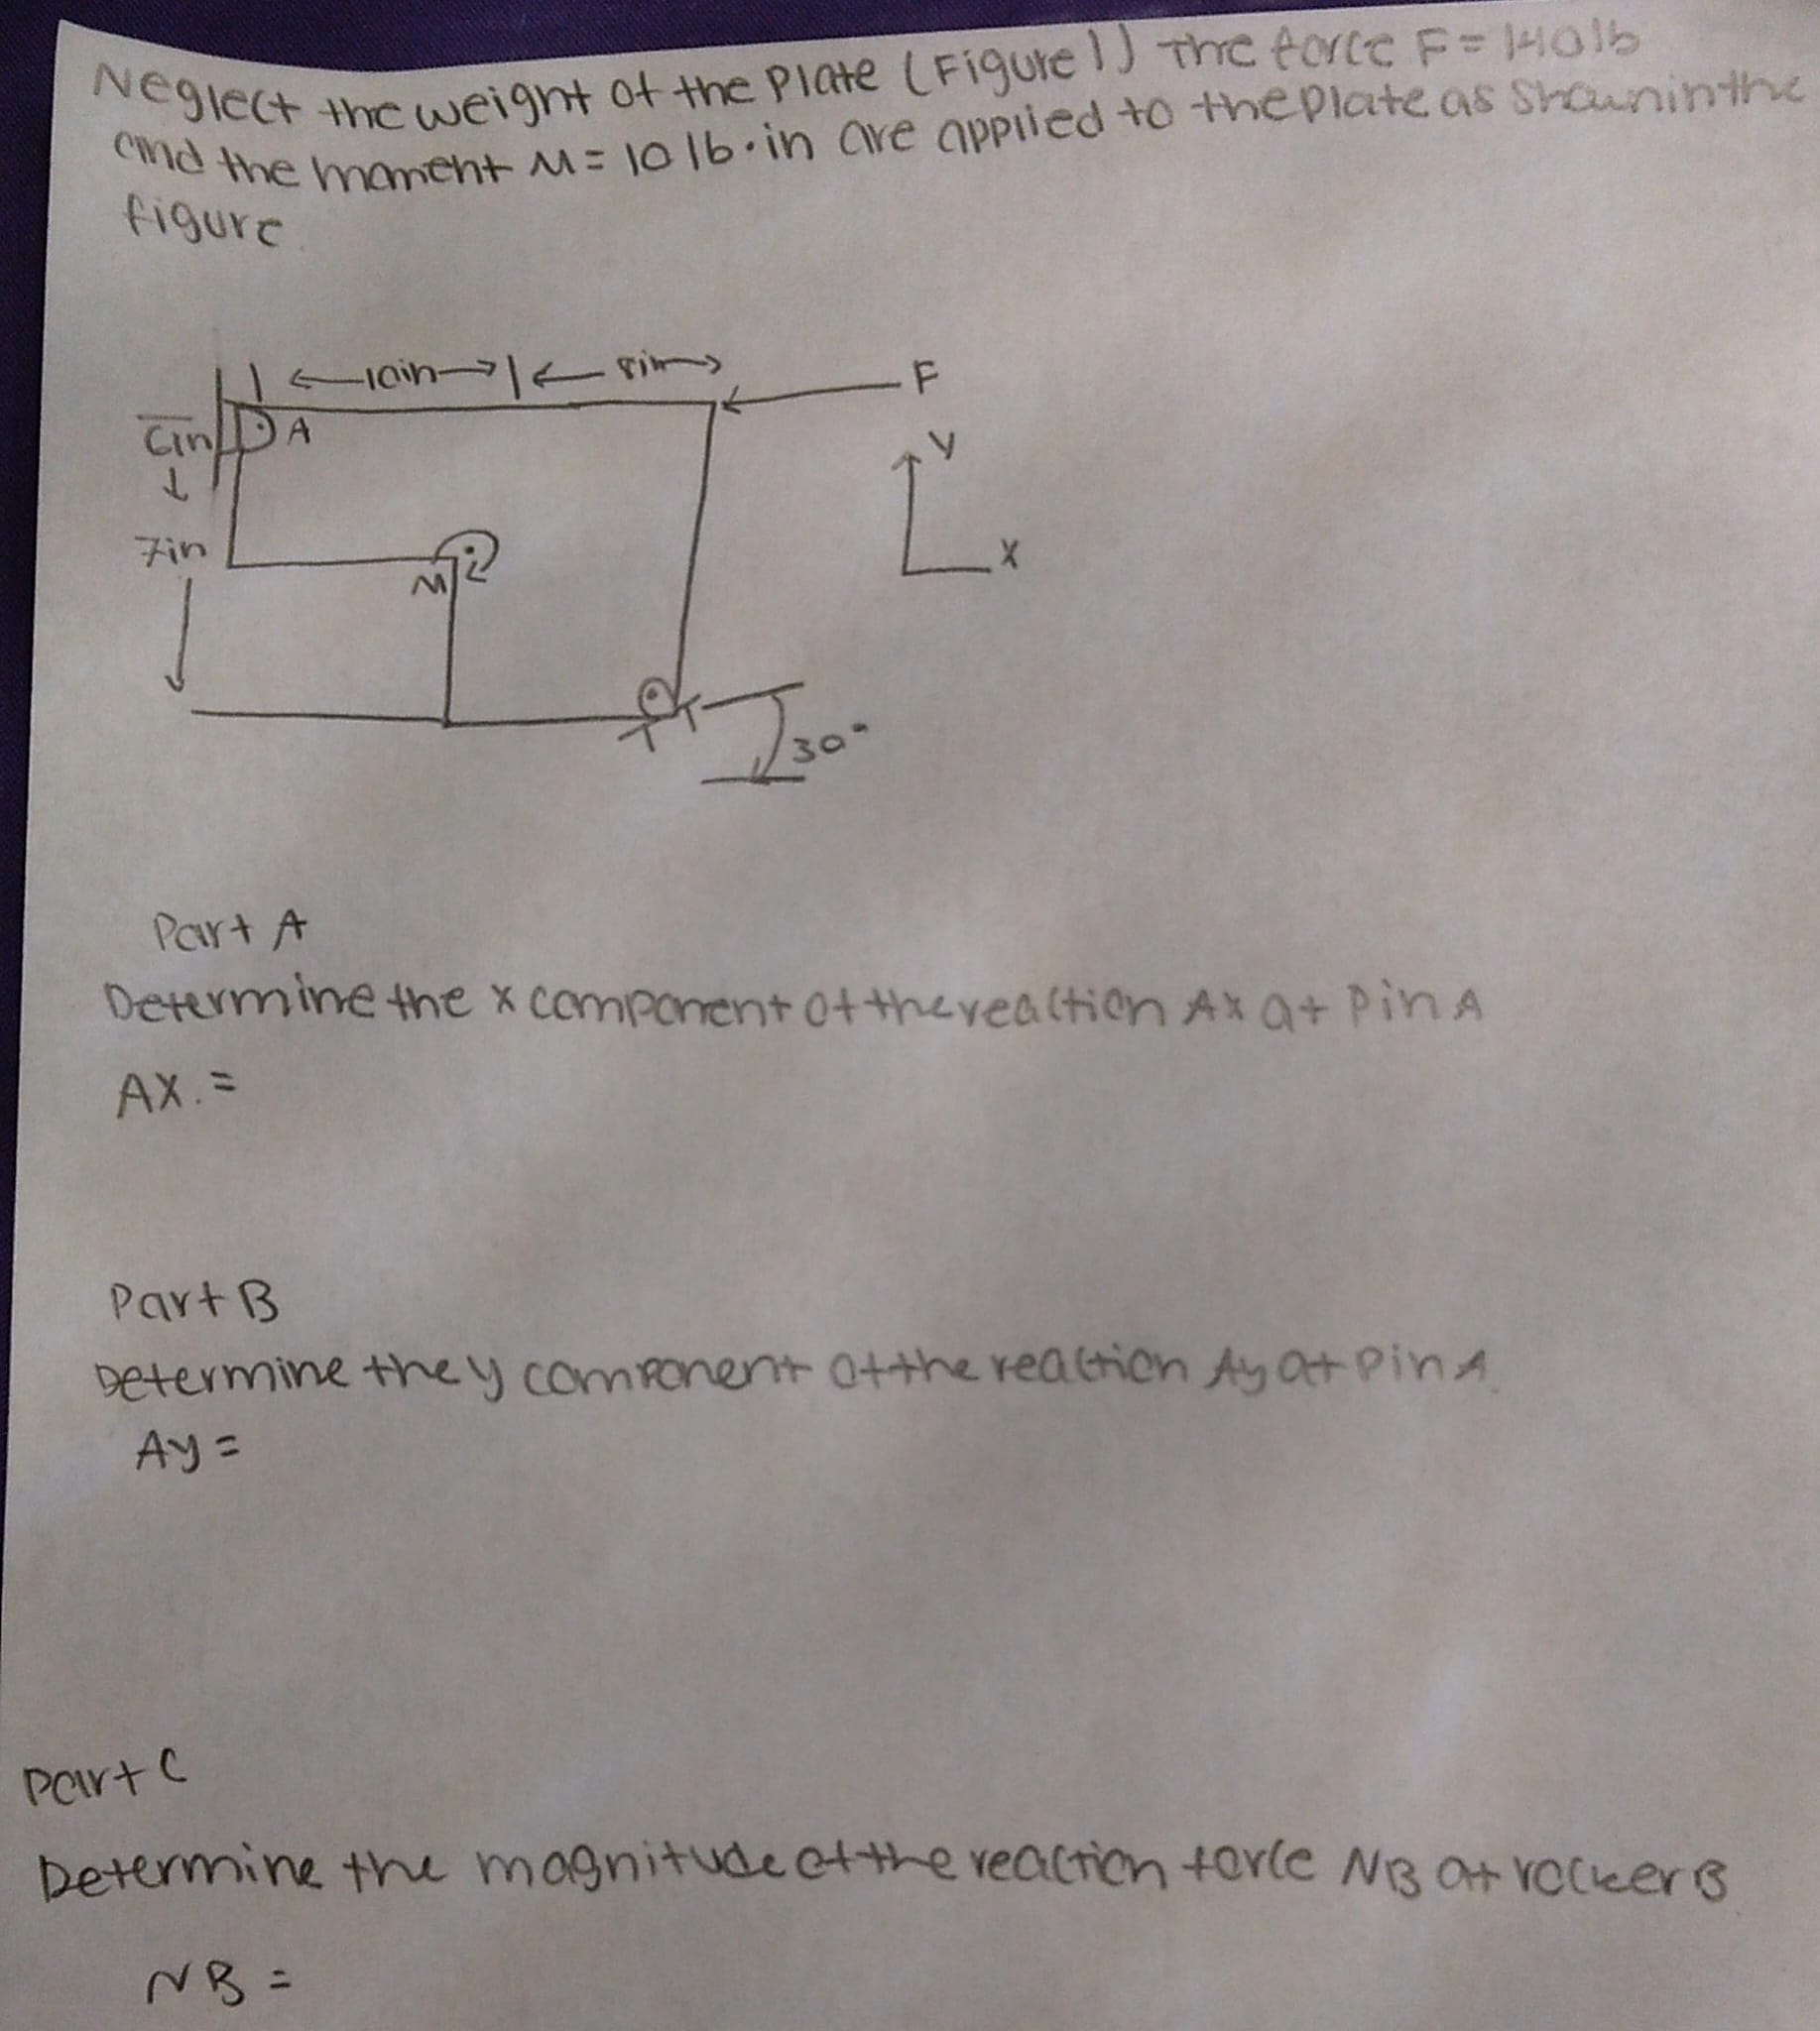 Neglect the weight of the plate (Figure 1) The force F = 140 lb
and the moment M = 10 lb·in are applied to the plate as shown in the
figure
10in
8in
F
6in
A
y
7in
M
x
30°
Part A
Determine the x component of the reaction Ax at Pin A
AX. =
Part B
Determine the y component of the reaction Ay at pin A.
Ay =
Part C
Determine the magnitude of the reaction force NB at rocker B
NB =